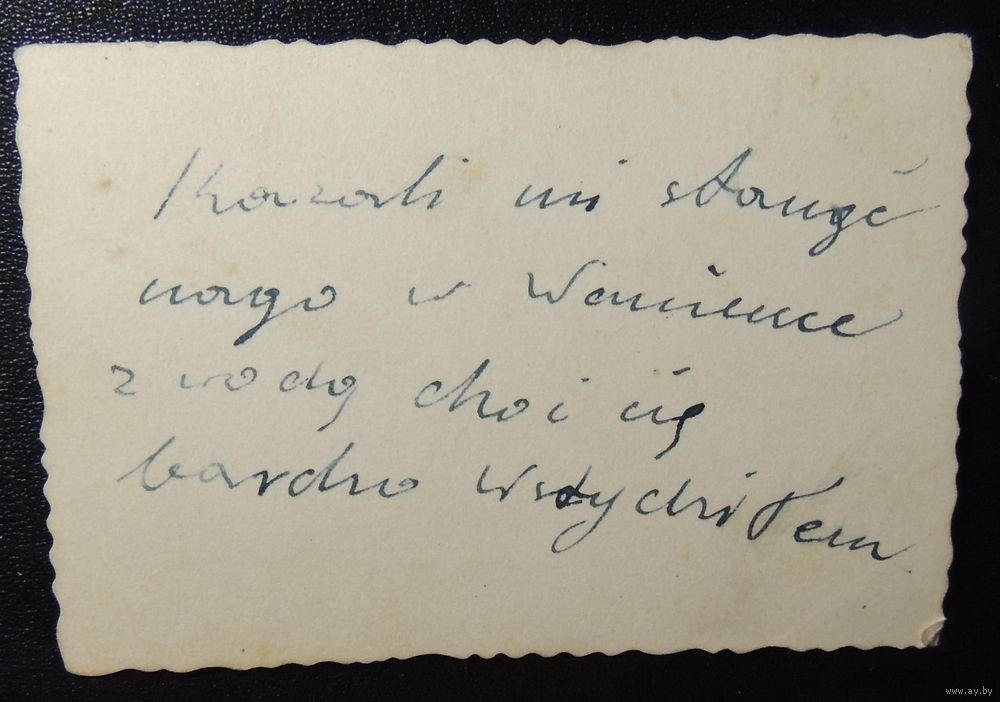 Kazali mi stanąć
nago w Wanience
z wodą choć się
bardzo wstydziłem
www.ay.by